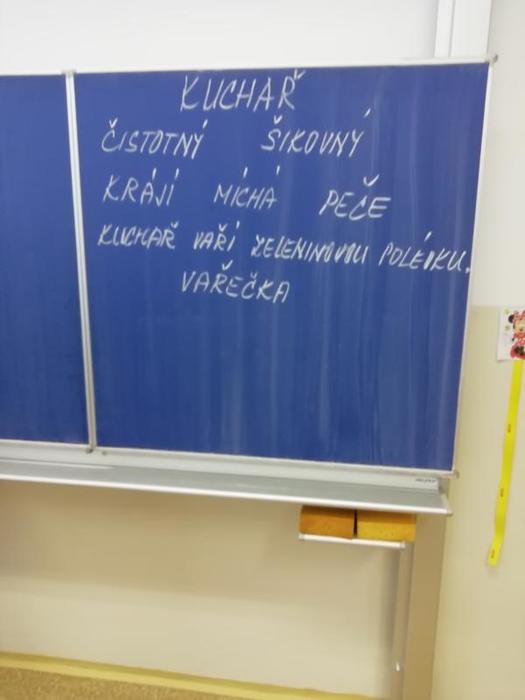 KUCHAŘ
ČISTOTNÝ ŠIKOVNÝ
KRÁJÍ MÍCHÁ PEČE
KUCHAŘ VAŘÍ ZELENINOVOU POLÉVKU.
VAŘEČKA